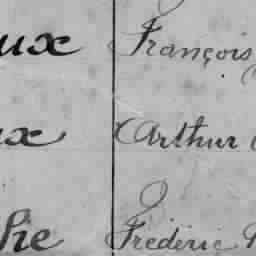 ux François
x Arthur
hie Frédéric